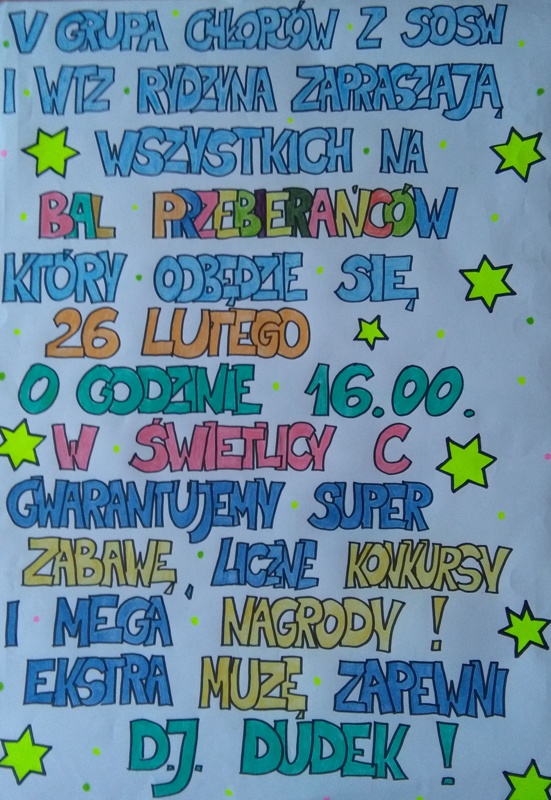 V GRUPA CHŁOPCÓW Z SOSW
I WTZ RYDZYNA ZAPRASZAJĄ
WSZYSTKICH NA
BAL PRZEBIERAŃCÓW
KTÓRY ODBĘDZIE SIĘ
26 LUTEGO
O GODZINIE 16.00.
W ŚWIETLICY C
GWARANTUJEMY SUPER
ZABAWĘ, LICZNE KONKURSY
I MEGA NAGRODY !
EKSTRA MUZĘ ZAPEWNI
D.J. DUDEK !